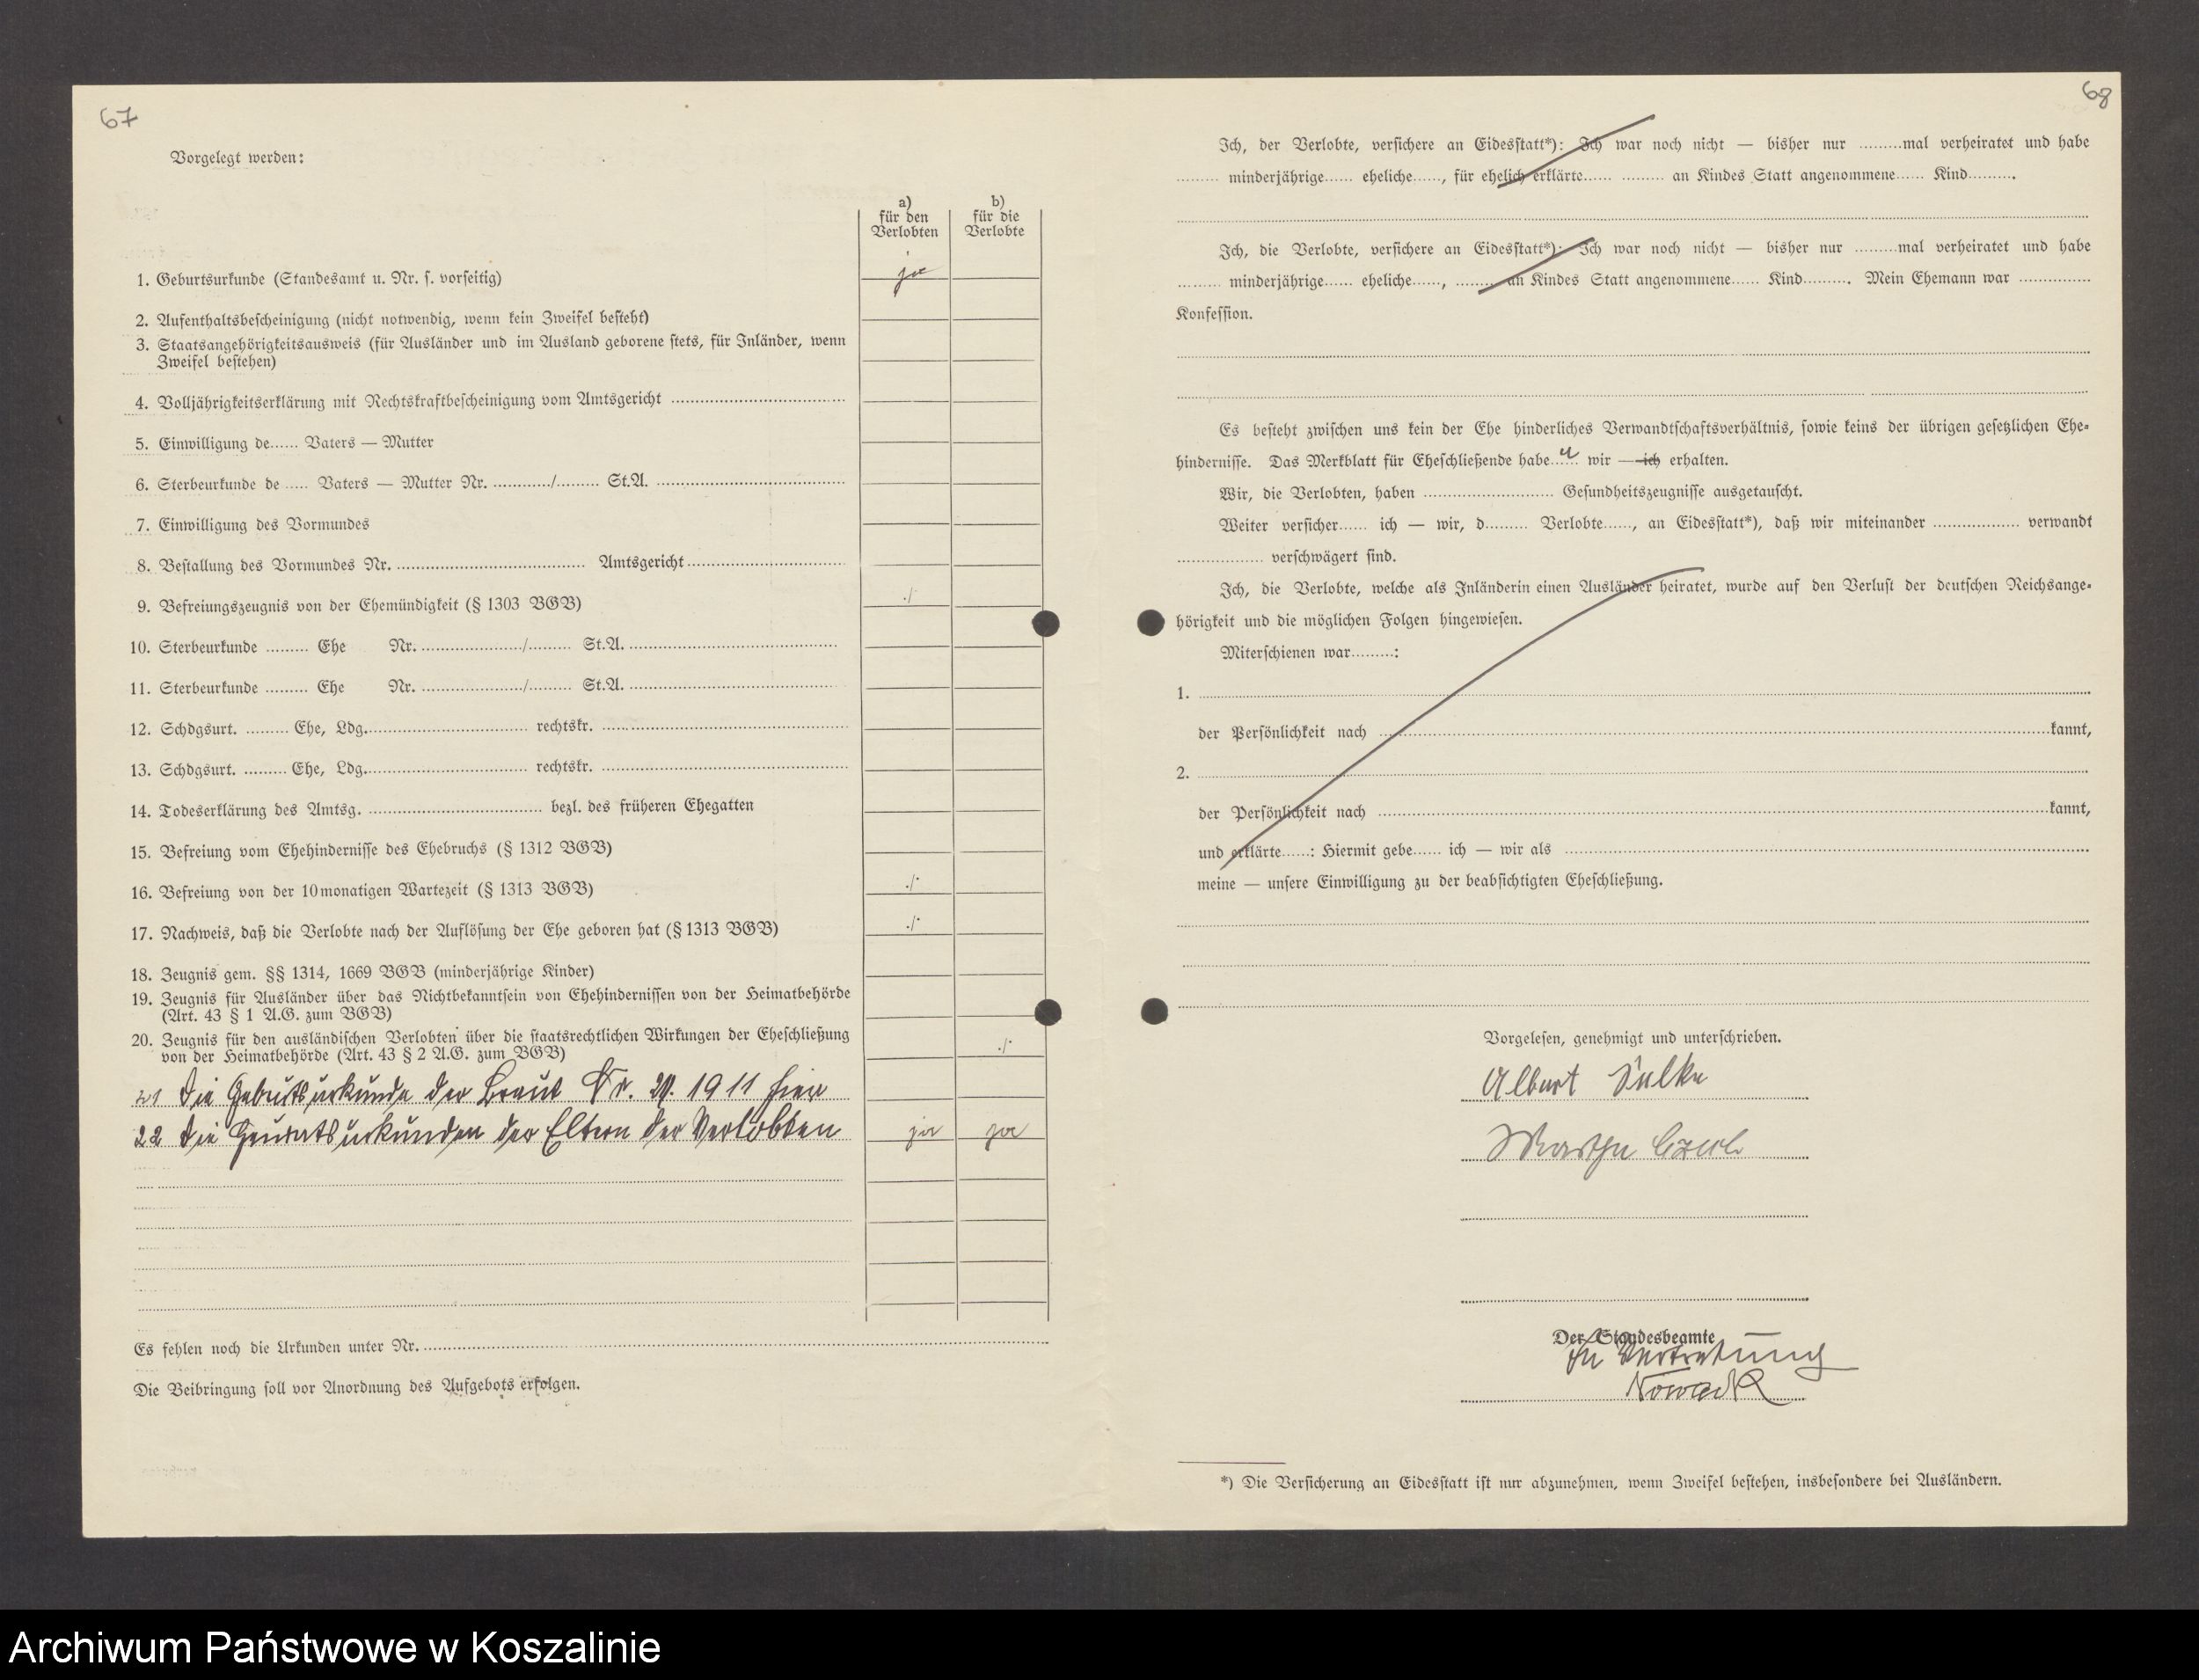 67
Vorgelegt werden:
a) für den Verlobten
b) für die Verlobte
1. Geburtsurkunde (Standesamt u. Nr. s. vorseitig) ja
2. Aufenthaltsbescheinigung (nicht notwendig, wenn kein Zweifel besteht)
3. Staatsangehörigkeitsausweis (für Ausländer und im Ausland geborene stets, für Inländer, wenn
Zweifel bestehen)
4. Volljährigkeitserklärung mit Rechtskraftbescheinigung vom Amtsgericht
5. Einwilligung de...... Vaters — Mutter
6. Sterbeurkunde de ..... Vaters — Mutter Nr. ............/......... St.A.
7. Einwilligung des Vormundes
8. Bestallung des Vormundes Nr. Amtsgericht
9. Befreiungszeugnis von der Ehemündigkeit (§ 1303 BGB) ./.
10. Sterbeurkunde ......... Ehe Nr. ....................../......... St.A.
11. Sterbeurkunde ......... Ehe Nr. ....................../......... St.A.
12. Schdgsurt. ......... Ehe, Ldg. rechtskr.
13. Schdgsurt. ......... Ehe, Ldg. rechtskr.
14. Todeserklärung des Amtsg. bezl. des früheren Ehegatten
15. Befreiung vom Ehehindernisse des Ehebruchs (§ 1312 BGB)
16. Befreiung von der 10monatigen Wartezeit (§ 1313 BGB) ./.
17. Nachweis, daß die Verlobte nach der Auflösung der Ehe geboren hat (§ 1313 BGB) ./.
18. Zeugnis gem. §§ 1314, 1669 BGB (minderjährige Kinder)
19. Zeugnis für Ausländer über das Nichtbekanntsein von Ehehindernissen von der Heimatbehörde
(Art. 43 § 1 A.G. zum BGB)
20. Zeugnis für den ausländischen Verlobten über die staatsrechtlichen Wirkungen der Eheschließung
von der Heimatbehörde (Art. 43 § 2 A.G. zum BGB) ./.
21 Die Geburtsurkunde der Braut Nr. 1911 hier
22 Die Heiratsurkunden der Eltern der Verlobten ja ja
Es fehlen noch die Urkunden unter Nr.
Die Beibringung soll vor Anordnung des Aufgebots erfolgen.
68
Ich, der Verlobte, versichere an Eidesstatt*): Ich war noch nicht — bisher nur .........mal verheiratet und habe
......... minderjährige...... eheliche......, für ehelich erklärte...... ......... an Kindes Statt angenommene...... Kind..........
Ich, die Verlobte, versichere an Eidesstatt*): Ich war noch nicht — bisher nur .........mal verheiratet und habe
......... minderjährige...... eheliche......, ......... an Kindes Statt angenommene...... Kind.......... Mein Ehemann war ...............
Konfession.
Es besteht zwischen uns kein der Ehe hinderliches Verwandtschaftsverhältnis, sowie keins der übrigen gesetzlichen Ehe-
hindernisse. Das Merkblatt für Eheschließende habe n wir — ich erhalten.
Wir, die Verlobten, haben ........................... Gesundheitszeugnisse ausgetauscht.
Weiter versicher...... ich — wir, d......... Verlobte......, an Eidesstatt*), daß wir miteinander .................. verwandt
.................. verschwägert sind.
Ich, die Verlobte, welche als Inländerin einen Ausländer heiratet, wurde auf den Verlust der deutschen Reichsange-
hörigkeit und die möglichen Folgen hingewiesen.
Miterschienen war.........:
1.
der Persönlichkeit nach kannt,
2.
der Persönlichkeit nach kannt,
und erklärte......: Hiermit gebe...... ich — wir als
meine — unsere Einwilligung zu der beabsichtigten Eheschließung.
Vorgelesen, genehmigt und unterschrieben.
Albert Sülke
Der Standesbeamte
In Vertretung
Nowack
*) Die Versicherung an Eidesstatt ist nur abzunehmen, wenn Zweifel bestehen, insbesondere bei Ausländern.
Archiwum Państwowe w Koszalinie